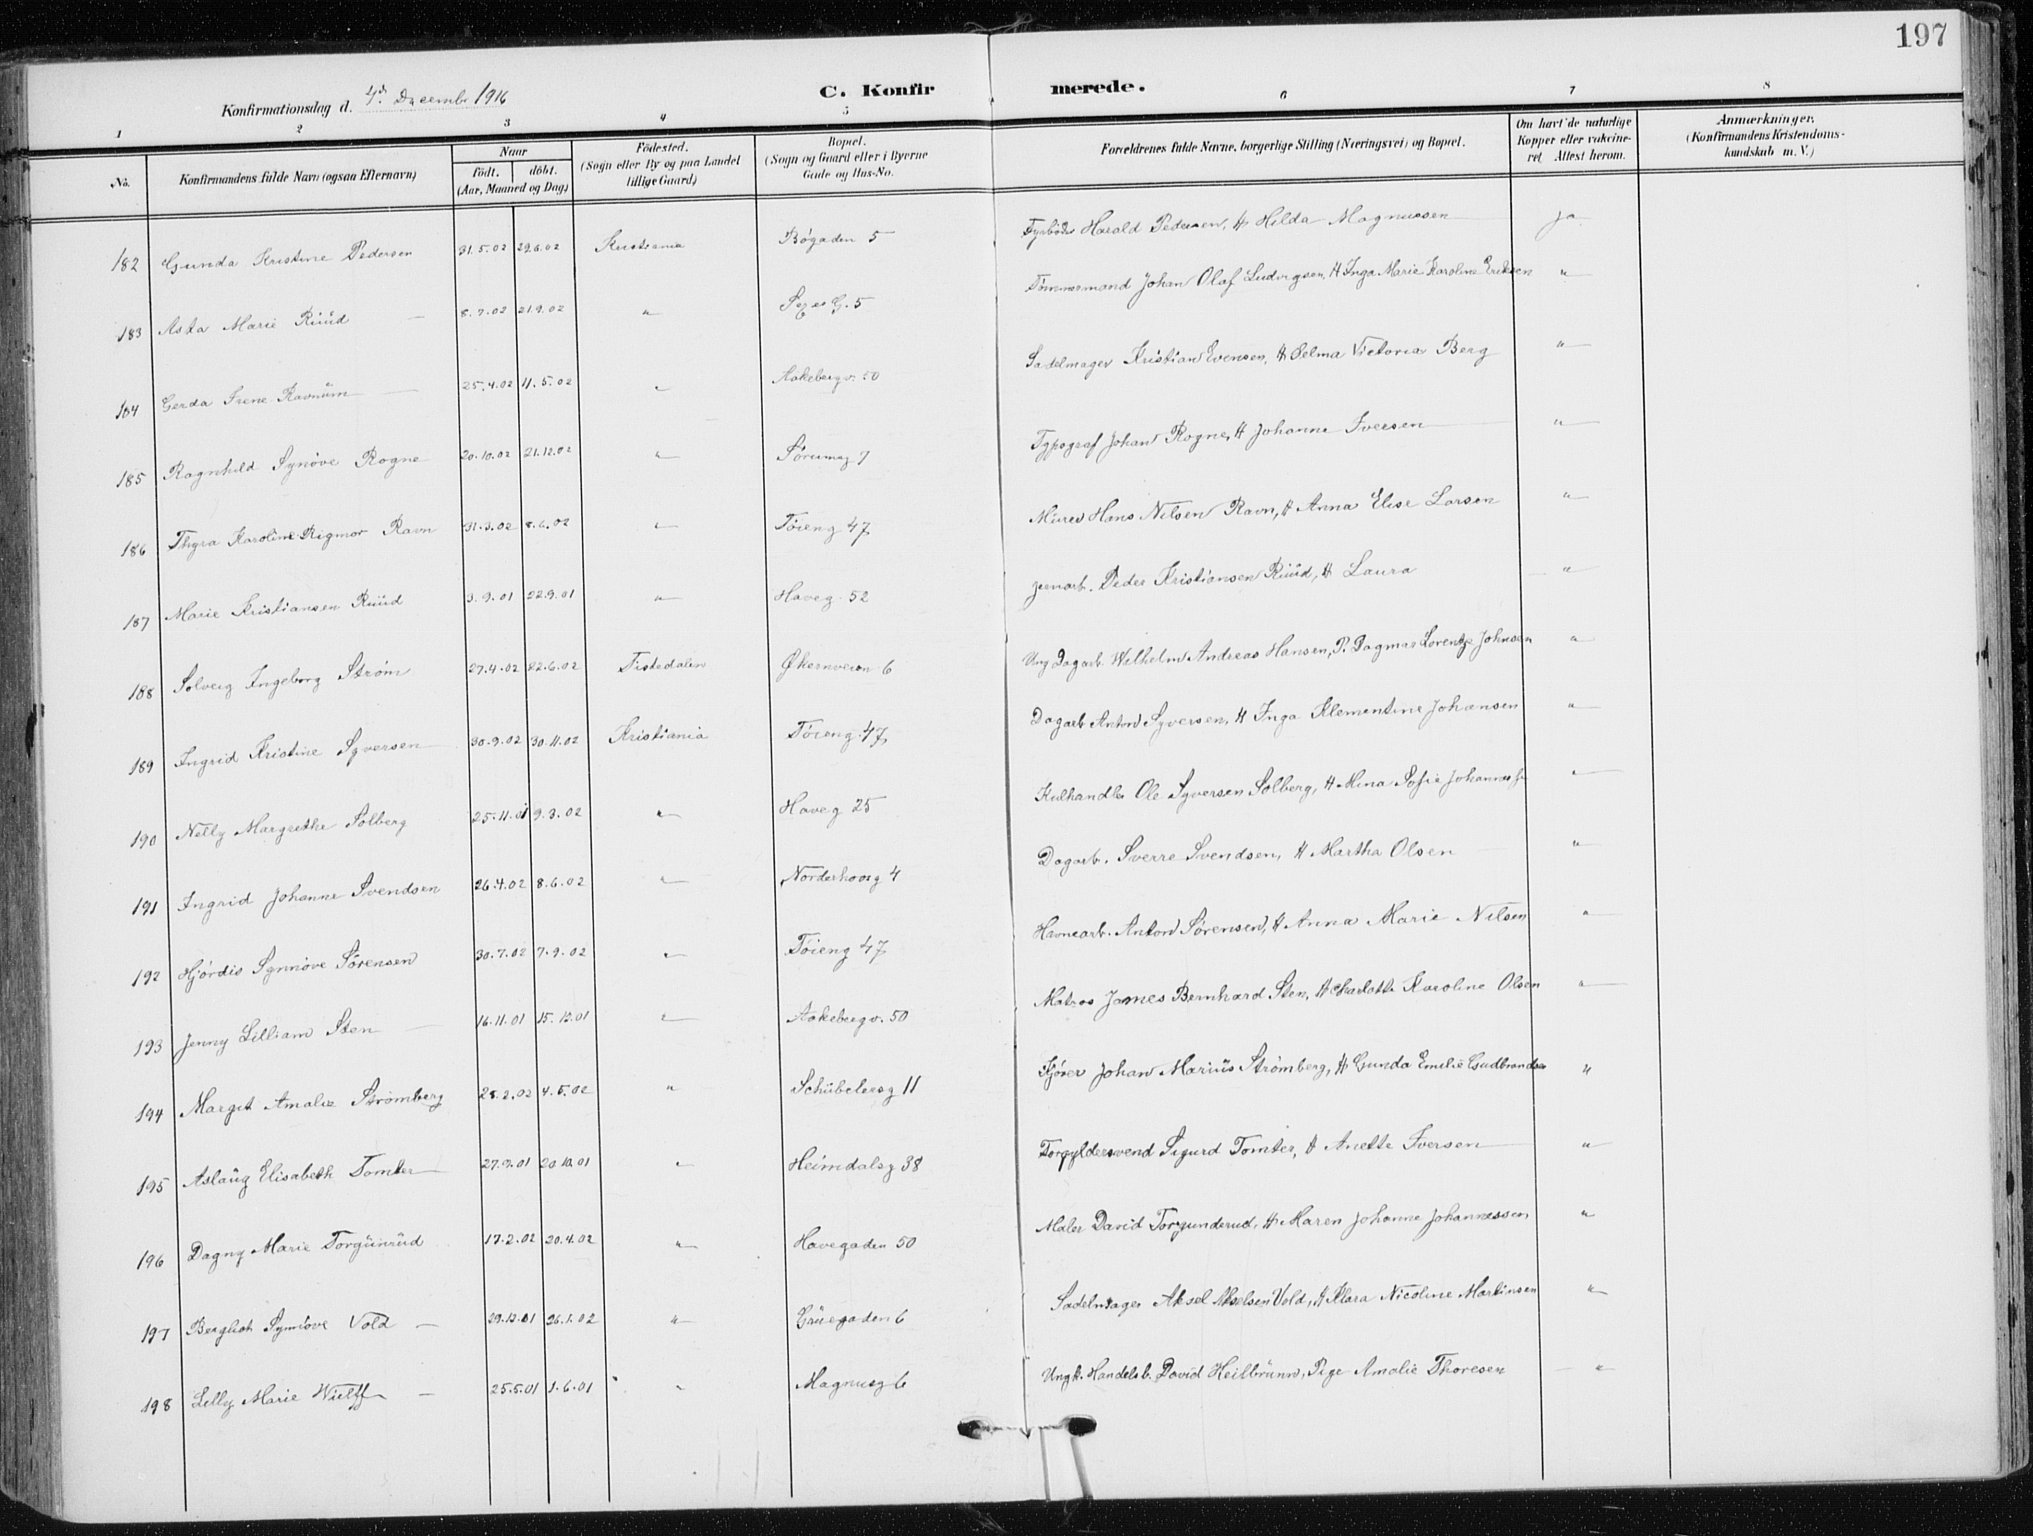 197
Konfirmationsdag d. 4de Decembr 1916
C. Konfirmerede.
1 2 3 4 5 6 7 8
No. Konfirmandens fulde Navn (ogsaa Efternavn) Naar født. døbt. (Aar, Maaned og Dag) Fødested. (Sogn eller By og paa Landet tillige Gaard) Bopæl. (Sogn og Gaard eller i Byerne Gade og Hus-No. Forældrenes fulde Navne, borgerlige Stilling (Næringsvei) og Bopæl. Om havt de naturlige Kopper eller vakcineret Attest herom. Anmærkninger. (Konfirmandens Kristendomskundskab m. V.)
182 Gunda Kristine Pedersen 31.5.02 29.6.02 Kristiania Bøgaden 5 Fyrbøder Harald Pedersen, H Hilda Magnussen ja
183 Asta Marie Ruud 8.7.02 21.9.02 " G. 5 Tømmermand Johan Olaf Ludvigsen, H Inga Marie Karoline Eriksen "
184 Gerda Irene Ravnum 25.4.02 11.5.02 " Aakebergv. 50 Sadelmager Kristian Evensen, H Selma Victoria Berg "
185 Ragnhild Synøve Rogne 20.10.02 21.12.02 " Sørumsg 7 Typograf Johan Rogne, H Johanne Iversen "
186 Thyra Karoline Rigmor Ravn 31.3.02 8.6.02 " Tøieng 47 Murer Hans Nilsen Ravn, H Anna Elise Larsen "
187 Marie Kristiansen Ruud 3.9.01 22.9.01 " Haveg. 52 Jernarb. Peder Kristiansen Ruud, H Laura "
188 Solveig Ingeborg Strøm 27.4.02 22.6.02 Tistedalen Økernveien 6 Ung Dagarb. Wilhelm Andreas Hansen, P. Dagmar Lorentze Johnsen "
189 Ingrid Kristine Syversen 30.9.02 30.11.02 Kristiania Tøieng. 47 Dagarb Anton Syversen, H Inga Klementine Johansen "
190 Nelly Margrethe Solberg 25.11.01 9.3.02 " Haveg 25 Kulhandler Ole Syversen Solberg, H Mina Sofie "
191 Ingrid Johanne Svendsen 26.4.02 8.6.02 " Norderhovsg 4 Dagarb. Sverre Svendsen, H Martha Olsen "
192 Hjørdis Synnøve Sørensen 30.7.02 7.9.02 " Tøieng 47 Havnearb. Anton Sørensen, H Anna Marie Nilsen "
193 Jenny Lilliam Sten 16.11.01 15.12.01 " Aakebergv. 50 Matros James Bernhard Sten, H Charlotte Karoline Olsen "
194 Margit Amalie Strømberg 28.2.02 4.5.02 " Schübelersg 11 Kjører Johan Marius Strømberg, H Gunda Emilie Gudbrandsen "
195 Aslaug Elisabeth Tomter 27.9.01 20.10.01 " Heimdalsg 38 Forgyldersvend Sigurd Tomter, H Anette Iversen "
196 Dagny Marie Torgunrud 17.2.02 20.4.02 " Havegaden 50 Maler David Torgunderud, H Maren Johanne Johannessen "
197 Bergliot Synnøve Vold 29.12.01 26.1.02 " Grüegaden 6 Sadelmager Aksel Akselsen Vold, H Klara Nicoline Martinsen "
198 Lilly Marie Wielff 25.5.01 1.6.01 " Magnusg 6 Ungk. Handelsb. David Heilbrunn, Pige Amalie Thoresen "